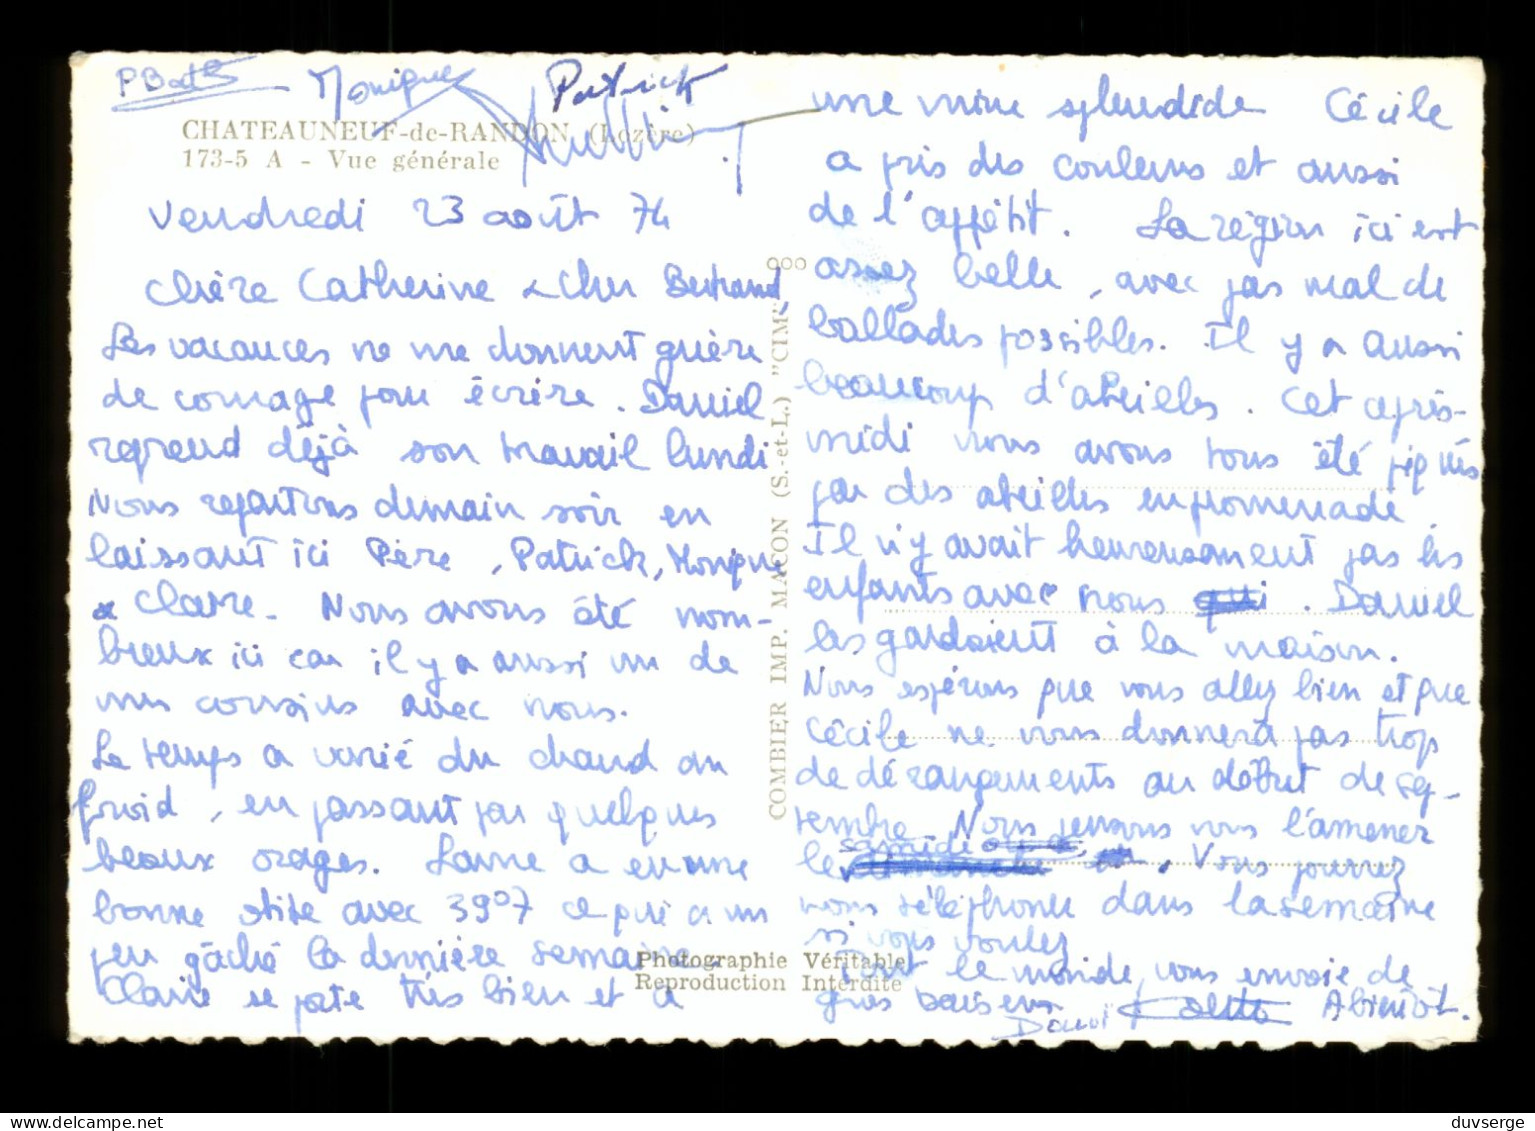 P Bost
Monique
Patrick
CHATEAUNEUF-de-RANDON (Lozère)
173-5 A - Vue générale
Vendredi 23 août 74
Chère Catherine & cher Bertrand,
Les vacances ne me donnent guère
de courage pour écrire. Daniel
reprend déjà son travail lundi
Nous repartons demain soir en
laissant ici Père, Patrick, Monique
& Claire. Nous avons été nom-
breux ici car il y a aussi un de
mes cousins avec nous.
Le temps a varié du chaud au
froid, en passant par quelques
beaux orages. Laure a eu une
bonne otite avec 39°7 ce qui a un
peu gâché la dernière semaine.
Claire se porte très bien et a
COMBIER IMP. MACON (S.-et-L.) "CIM"
Photographie Véritable
Reproduction Interdite
une mine splendide Cécile
a pris des couleurs et aussi
de l'appétit. La région ici est
assez belle, avec pas mal de
ballades possibles. Il y a aussi
beaucoup d'abeilles. Cet après-
midi nous avons tous été piqués
par des abeilles en promenade
Il n'y avait heureusement pas les
enfants avec nous qui. Daniel
les gardaient à la maison.
Nous espérons que vous allez bien et que
Cécile ne vous donnera pas trop
de dérangements au début de sep-
tembre. Nous pensons vous l'amener
samedi
le . Vous pourrez
nous téléphoner dans la semaine
si vous voulez
Tout le monde vous envoie de
gros baisers A bientôt.
duvserge